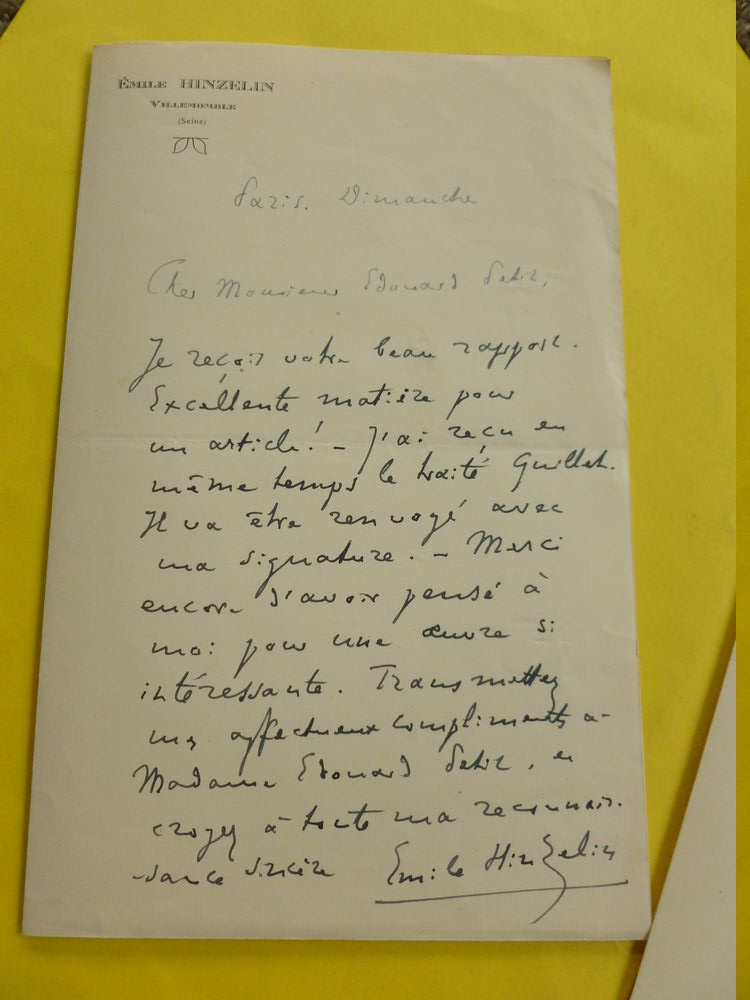 ÉMILE HINZELIN
VILLEMOMBLE
(Seine)
Paris. Dimanche
Cher Monsieur Edouard Petit,
Je reçois votre beau rapport.
Excellente matière pour
un article ! – J'ai reçu en
même temps le traité Guillet.
Il va être renvoyé avec
ma signature. – Merci
encore d'avoir pensé à
moi pour une œuvre si
intéressante. Transmettez
mes affectueux compliments à
Madame Edouard Petit, et
croyez à toute ma reconnais-
-sance sincère Emile Hinzelin